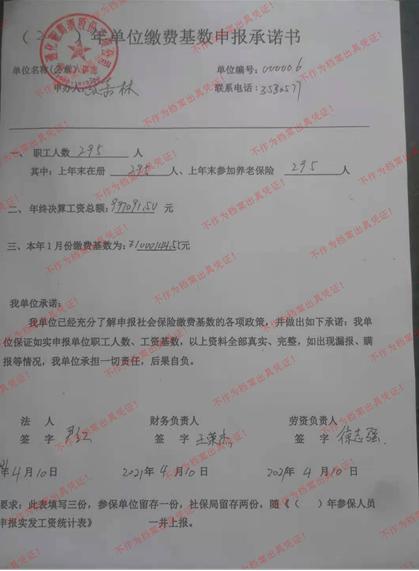 年单位缴费基数申报承诺书
单位名称(公章) 单位编号:000006
申办人: 联系电话:3582577
一、 职工人数 295 人
其中:上年末在册 295 人、上年末参加养老保险 295 人
二、 年终决算工资总额: 元
三、本年1月份缴费基数为: 元
我单位承诺:
我单位已经充分了解申报社会保险缴费基数的各项政策,并做出如下承诺:我单
位保证如实申报单位职工人数、工资基数,以上资料全部真实、完整,如出现漏报、瞒
报等情况,我单位承担一切责任,后果自负。
法 人 财务负责人 劳资负责人
签 字 签 字 王荣杰 签 字 徐志强
4月10日 2021年4月10日 2021年4月10日
要求:此表填写三份,参保单位留存一份,社保局留存两份,随《( )年参保人员
申报实发工资统计表》 一并上报。
不作为档案出具凭证!